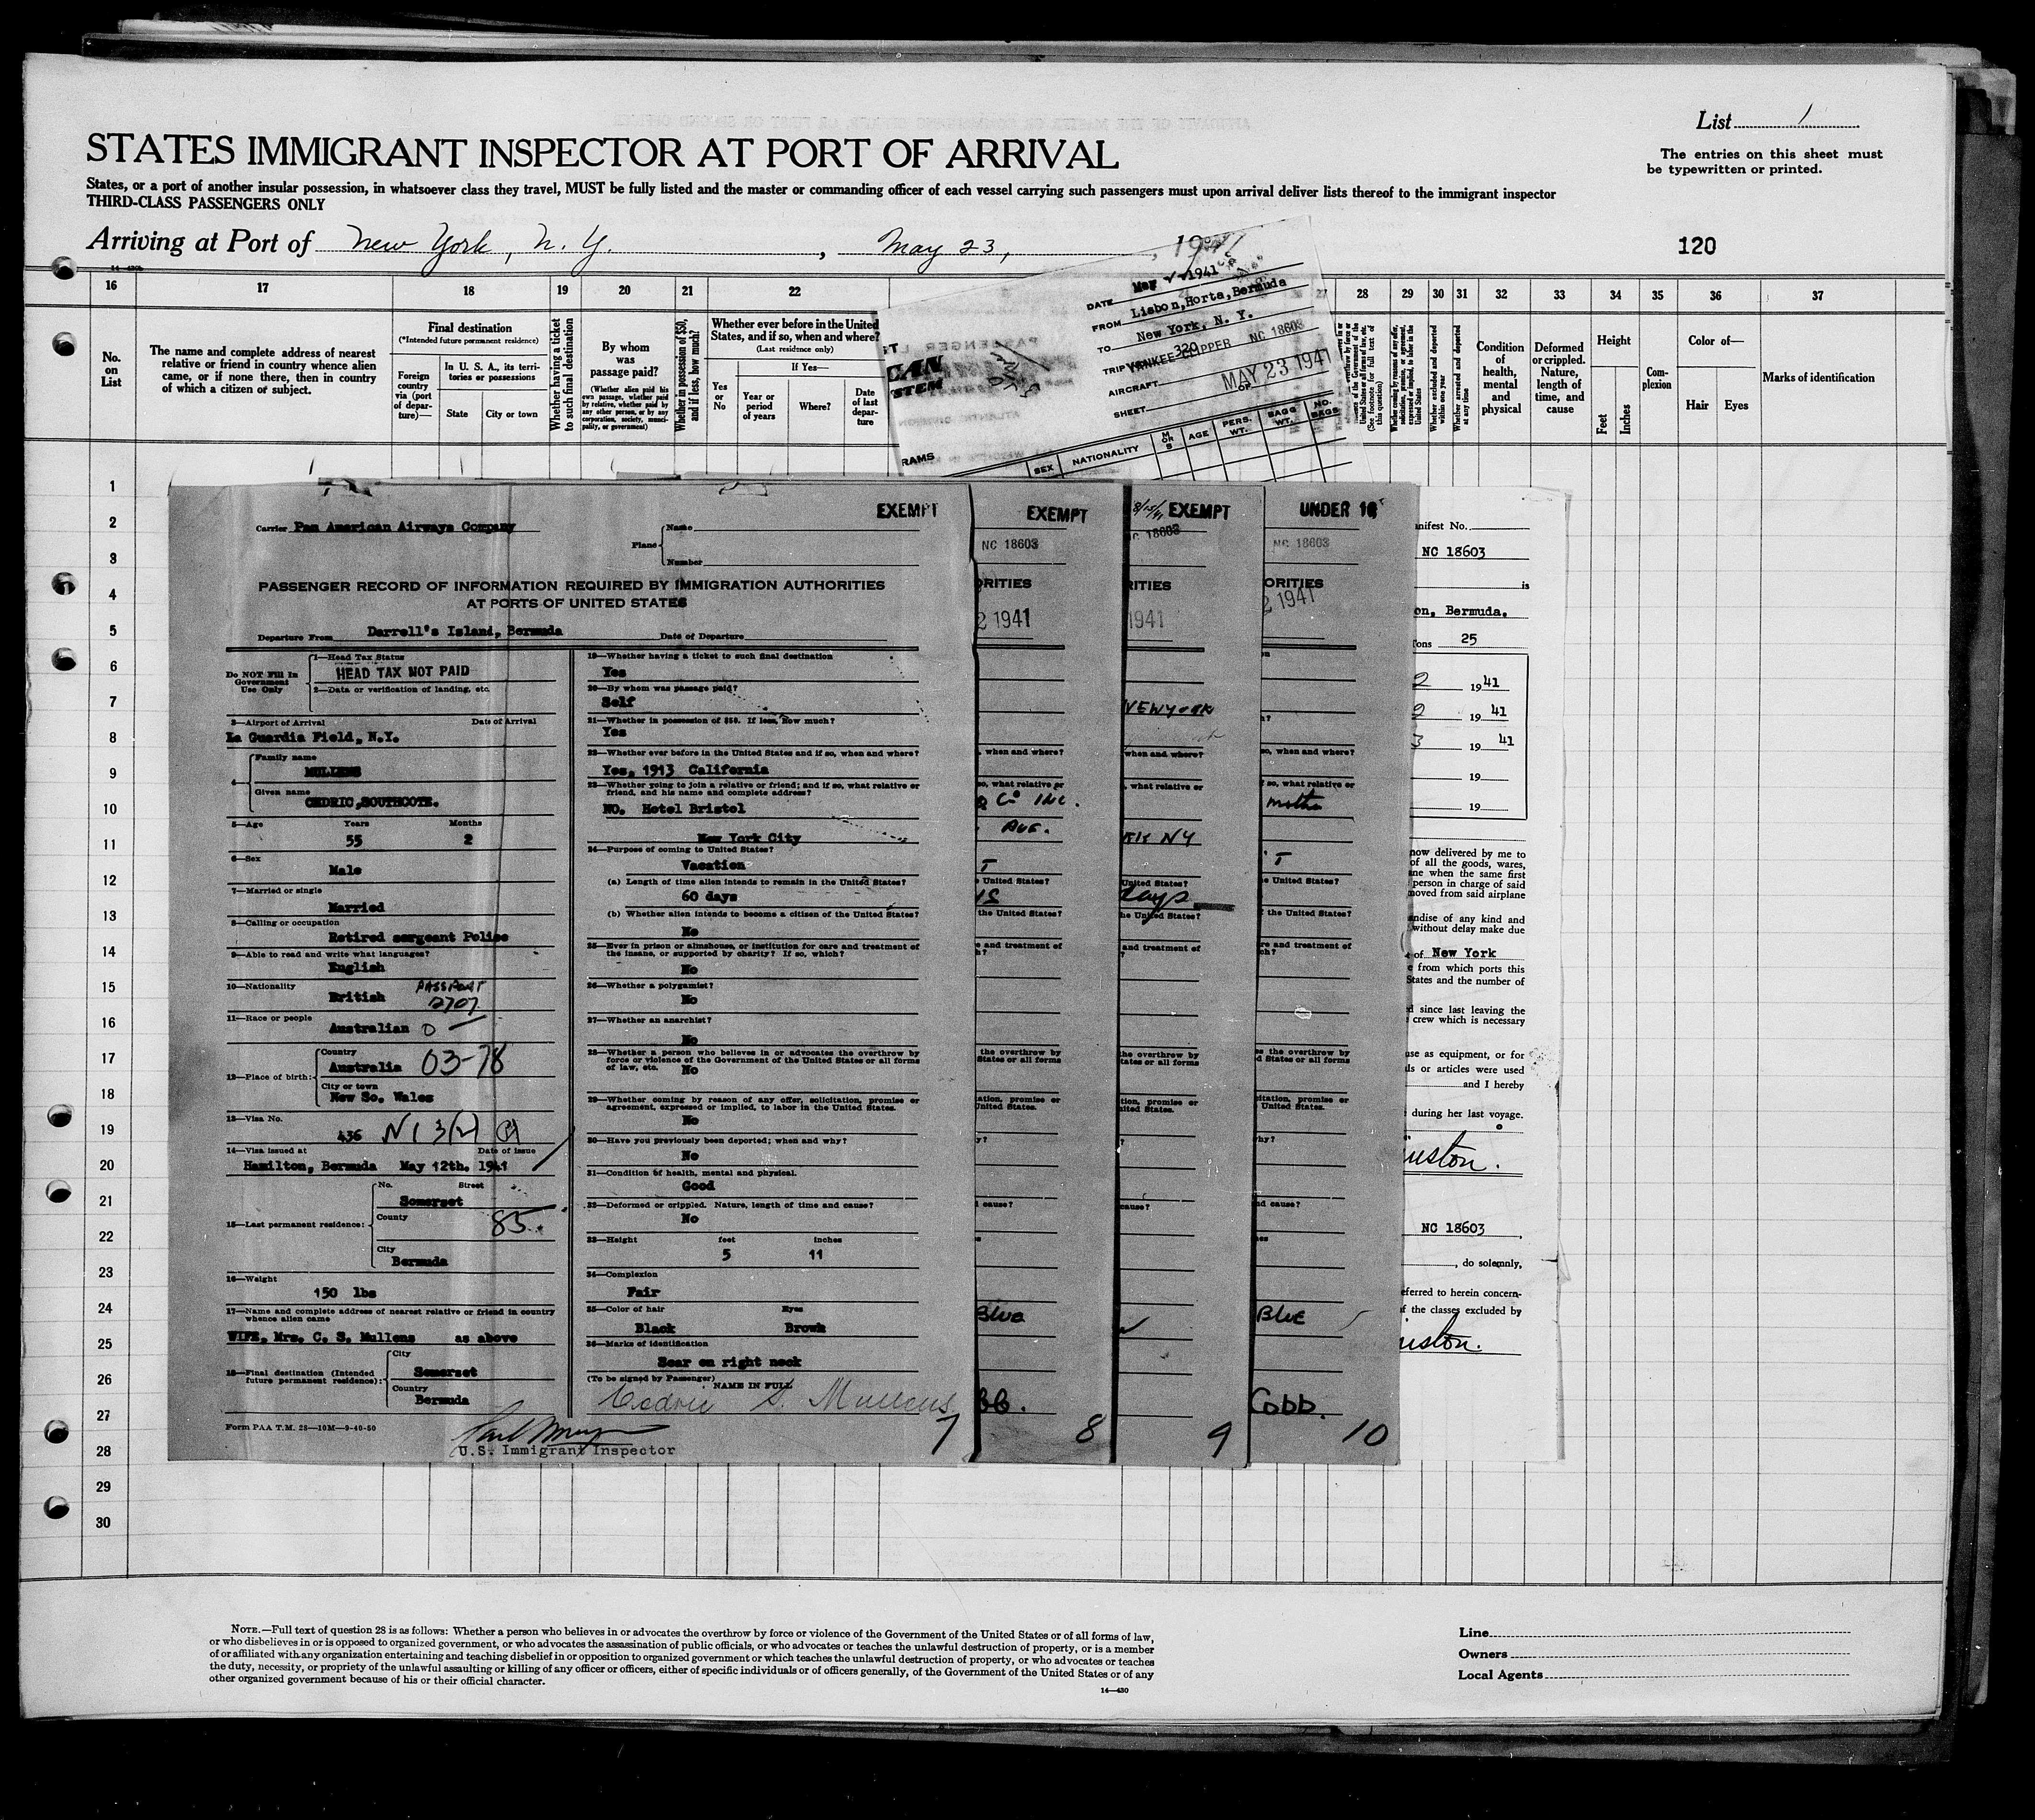 List 1
The entries on this sheet must
be typewritten or printed.
STATES IMMIGRANT INSPECTOR AT PORT OF ARRIVAL
States, or a port of another insular possession, in whatsoever class they travel, MUST be fully listed and the master or commanding officer of each vessel carrying such passengers must upon arrival deliver lists thereof to the immigrant inspector
THIRD-CLASS PASSENGERS ONLY
Arriving at Port of New York, N. Y. , May 23, , 1941
120
16 17 18 19 20 21 22 27 28 29 30 31 32 33 34 35 36 37
No.
on
List
The name and complete address of nearest
relative or friend in country whence alien
came, or if none there, then in country
of which a citizen of subject.
Final destination
(*Intended future permanent residence)
Foreign
country
via (port
of depar-
ture)—
In U. S. A., its terri-
tories or possessions
State
City or town
Whether having a ticket
to such final destination
By whom
was
passage paid?
(Whether alien paid his
own passage, whether paid
by relative, whether paid by
any other person, or by any
corporation, society, munici-
pality, or government)
Whether in possession of $50,
and if less, how much?
Whether ever before in the United
States, and if so, when and where?
(Last residence only)
If Yes—
Yes
or
No
Year or
period
of years
Where?
Date
of last
depar-
ture
(See footnote for full text of
this question)
Whether excluded and deported
within one year
Whether arrested and deported
at any time
Condition
of
health,
mental
and
physical
Deformed
or crippled.
Nature,
length of
time, and
cause
Height
Feet
Inches
Com-
plexion
Color of—
Hair
Eyes
Marks of identification
DATE May 1941
FROM Lisbon, Horta, Bermuda
TO New York, N. Y.
TRIP 320
AIRCRAFT YANKEE CLIPPER NC 18603
SHEET OF
MAY 23 1941
CAN
STEM
RAMS
SEX NATIONALITY M OR S AGE PERS. WT. BAGG WT. NO. BAGS
1
2
3
4
5
6
7
8
9
10
11
12
13
14
15
16
17
18
19
20
21
22
23
24
25
26
27
28
29
30
EXEMPT
Carrier Pan American Airways Company
Plane
Name
Number
PASSENGER RECORD OF INFORMATION REQUIRED BY IMMIGRATION AUTHORITIES
AT PORTS OF UNITED STATES
Departure From Darrell's Island, Bermuda Date of Departure
Do NOT Fill In
Government
Use Only
1—Head Tax Status
HEAD TAX NOT PAID
2—Data or verification of landing, etc.
3—Airport of Arrival Date of Arrival
La Guardia Field, N.Y.
4—
Family name
MULLENS
Given name
CEDRIC,SOUTHCOTE.
5—Age Years Months
55 2
6—Sex
Male
7—Married or single
Married
8—Calling or occupation
Retired sergeant Police
9—Able to read and write what languages?
English
10—Nationality
British PASSPORT
2707
11—Race or people
Australian 0
12—Place of birth:
Country
Australia 03-78
City or town
New So. Wales
13—Visa No.
436 N13(2)
14—Visa issued at Date of issue
Hamilton, Bermuda May 12th, 1941
15—Last permanent residence:
No. Street
Somerset
County
85
City
Bermuda
16—Weight
150 lbs
17—Name and complete address of nearest relative or friend in country
whence alien came
WIFE, Mrs. C. S. Mullens as above
18—Final destination (Intended
future permanent residence):
City
Somerset
Country
Bermuda
Form PAA T.M. 28—10M—9-40-50
U.S. Immigrant Inspector
19—Whether having a ticket to such final destination
Yes
20—By whom was passage paid?
Self
21—Whether in possession of $50. If less, how much?
Yes
22—Whether ever before in the United States and if so, when and where?
Yes, 1913 California
23—Whether going to join a relative or friend; and if so, what relative or
friend, and his name and complete address?
NO. Hotel Bristol
New York City
24—Purpose of coming to United States?
Vacation
(a) Length of time alien intends to remain in the United States?
60 days
(b) Whether alien intends to become a citizen of the United States?
No
25—Ever in prison or almshouse, or institution for care and treatment of
the insane, or supported by charity? If so, which?
No
26—Whether a polygamist?
No
27—Whether an anarchist?
No
28—Whether a person who believes in or advocates the overthrow by
force or violence of the Government of the United States or all forms
of law, etc.
No
29—Whether coming by reason of any offer, solicitation, promise or
agreement, expressed or implied, to labor in the United States.
No
30—Have you previously been deported; when and why?
No
31—Condition of health, mental and physical.
Good
32—Deformed or crippled. Nature, length of time and cause?
No
33—Height feet inches
5 11
34—Complexion
Fair
35—Color of hair Eyes
Black Brown
36—Marks of identification
Scar on right neck
(To be signed by Passenger)
NAME IN FULL
Cedric S. Mullens
7
EXEMPT
NC 18603
ORITIES
2 1941
, when and where?
so, what relative or
Co INC.
AVE.
T
United States?
the United States?
e and treatment of
h?
the overthrow by
States or all forms
ation, promise or
United States.
y?
d cause?
Blue
bb.
8
8/15/41 EXEMPT
NC 18603
RITIES
1941
NEW YORK
when and where?
, what relative or
RK NY
United States?
days
he United States?
and treatment of
?
he overthrow by
tates or all forms
tion, promise or
nited States.
?
cause?
9
UNDER 16
NC 18603
ORITIES
2 1941
n?
so, when and where?
f so, what relative or
mother
T
e United States?
f the United States?
re and treatment of
ich?
es the overthrow by
d States or all forms
citation, promise or
United States.
why?
nd cause?
Blue
Cobb.
10
anifest No.
NC 18603
is
on, Bermuda.
Tons 25
2 1941
2 1941
3 1941
19
19
now delivered by me to
of all the goods, wares,
ane when the same first
person in charge of said
moved from said airplane
andise of any kind and
without delay make due
of New York
e from which ports this
States and the number of
d since last leaving the
crew which is necessary
use as equipment, or for
ls or articles were used
and I hereby
during her last voyage.
NC 18603 ,
, do solemnly,
eferred to herein concern-
f the classes excluded by
NOTE.—Full text of question 28 is as follows: Whether a person who believes in or advocates the overthrow by force or violence of the Government of the United States or of all forms of law,
or who disbelieves in or is opposed to organized government, or who advocates the assassination of public officials, or who advocates or teaches the unlawful destruction of property, or is a member
of or affiliated with any organization entertaining and teaching disbelief in or opposition to organized government or which teaches the unlawful destruction of property, or who advocates or teaches
the duty, necessity, or propriety of the unlawful assaulting or killing of any officer or officers, either of specific individuals or of officers generally, of the Government of the United States or of any
other organized government because of his or their official character.
14—430
Line
Owners
Local Agents